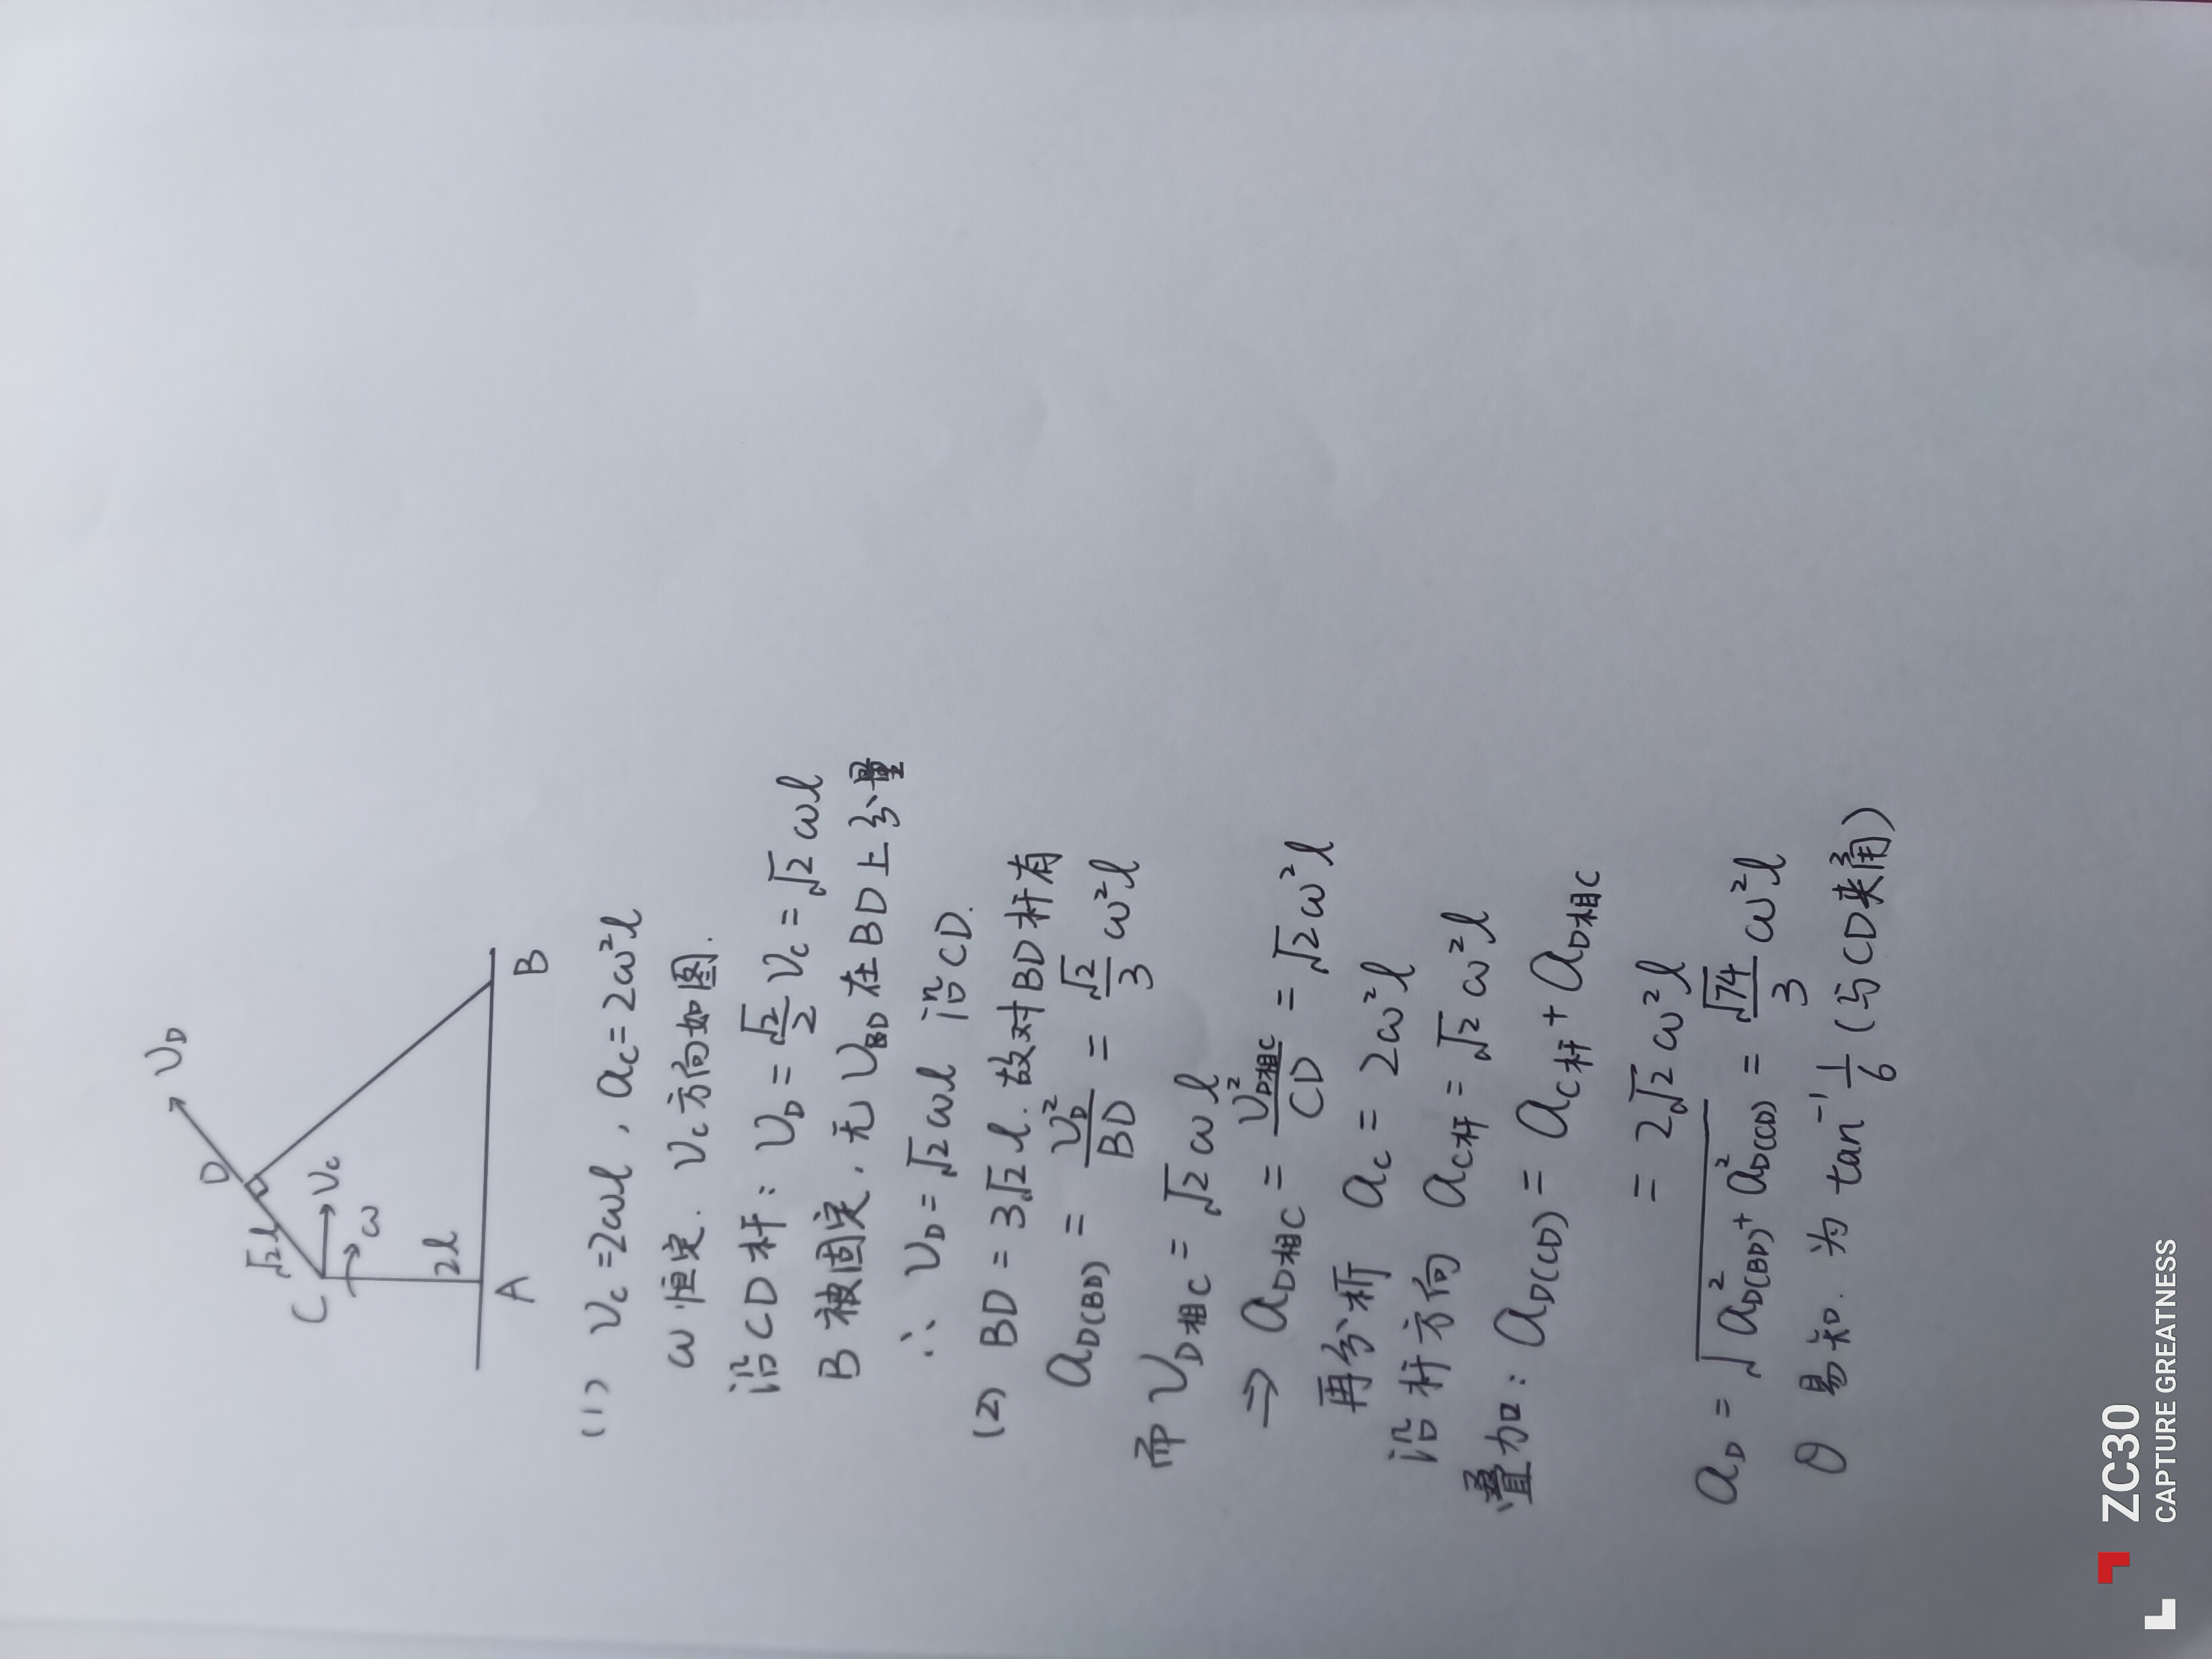 D
υD
√2l
C
υc
ω
2l
A
B
(1) υc=2ωl, ac=2ω²l
ω恒定. υc方向如图.
沿CD杆: υD = √2/2 υc = √2ωl
B被固定, 无υBD在BD上分量
∴ υD = √2ωl 沿CD.
(2) BD = 3√2l. 故对BD杆有
aD(BD) = υD²/BD = √2/3 ω²l
而 υD相C = √2ωl
⇒ aD相C = υ²D相C/CD = √2ω²l
再分析 ac = 2ω²l
沿杆方向 aC杆 = √2ω²l
叠加: aD(CD) = aC杆 + aD相C
= 2√2ω²l
aD = √(a²D(BD) + a²D(CD)) = √74/3 ω²l
θ易知. 为 tan⁻¹ 1/6 (与CD夹角)
ZC30
CAPTURE GREATNESS